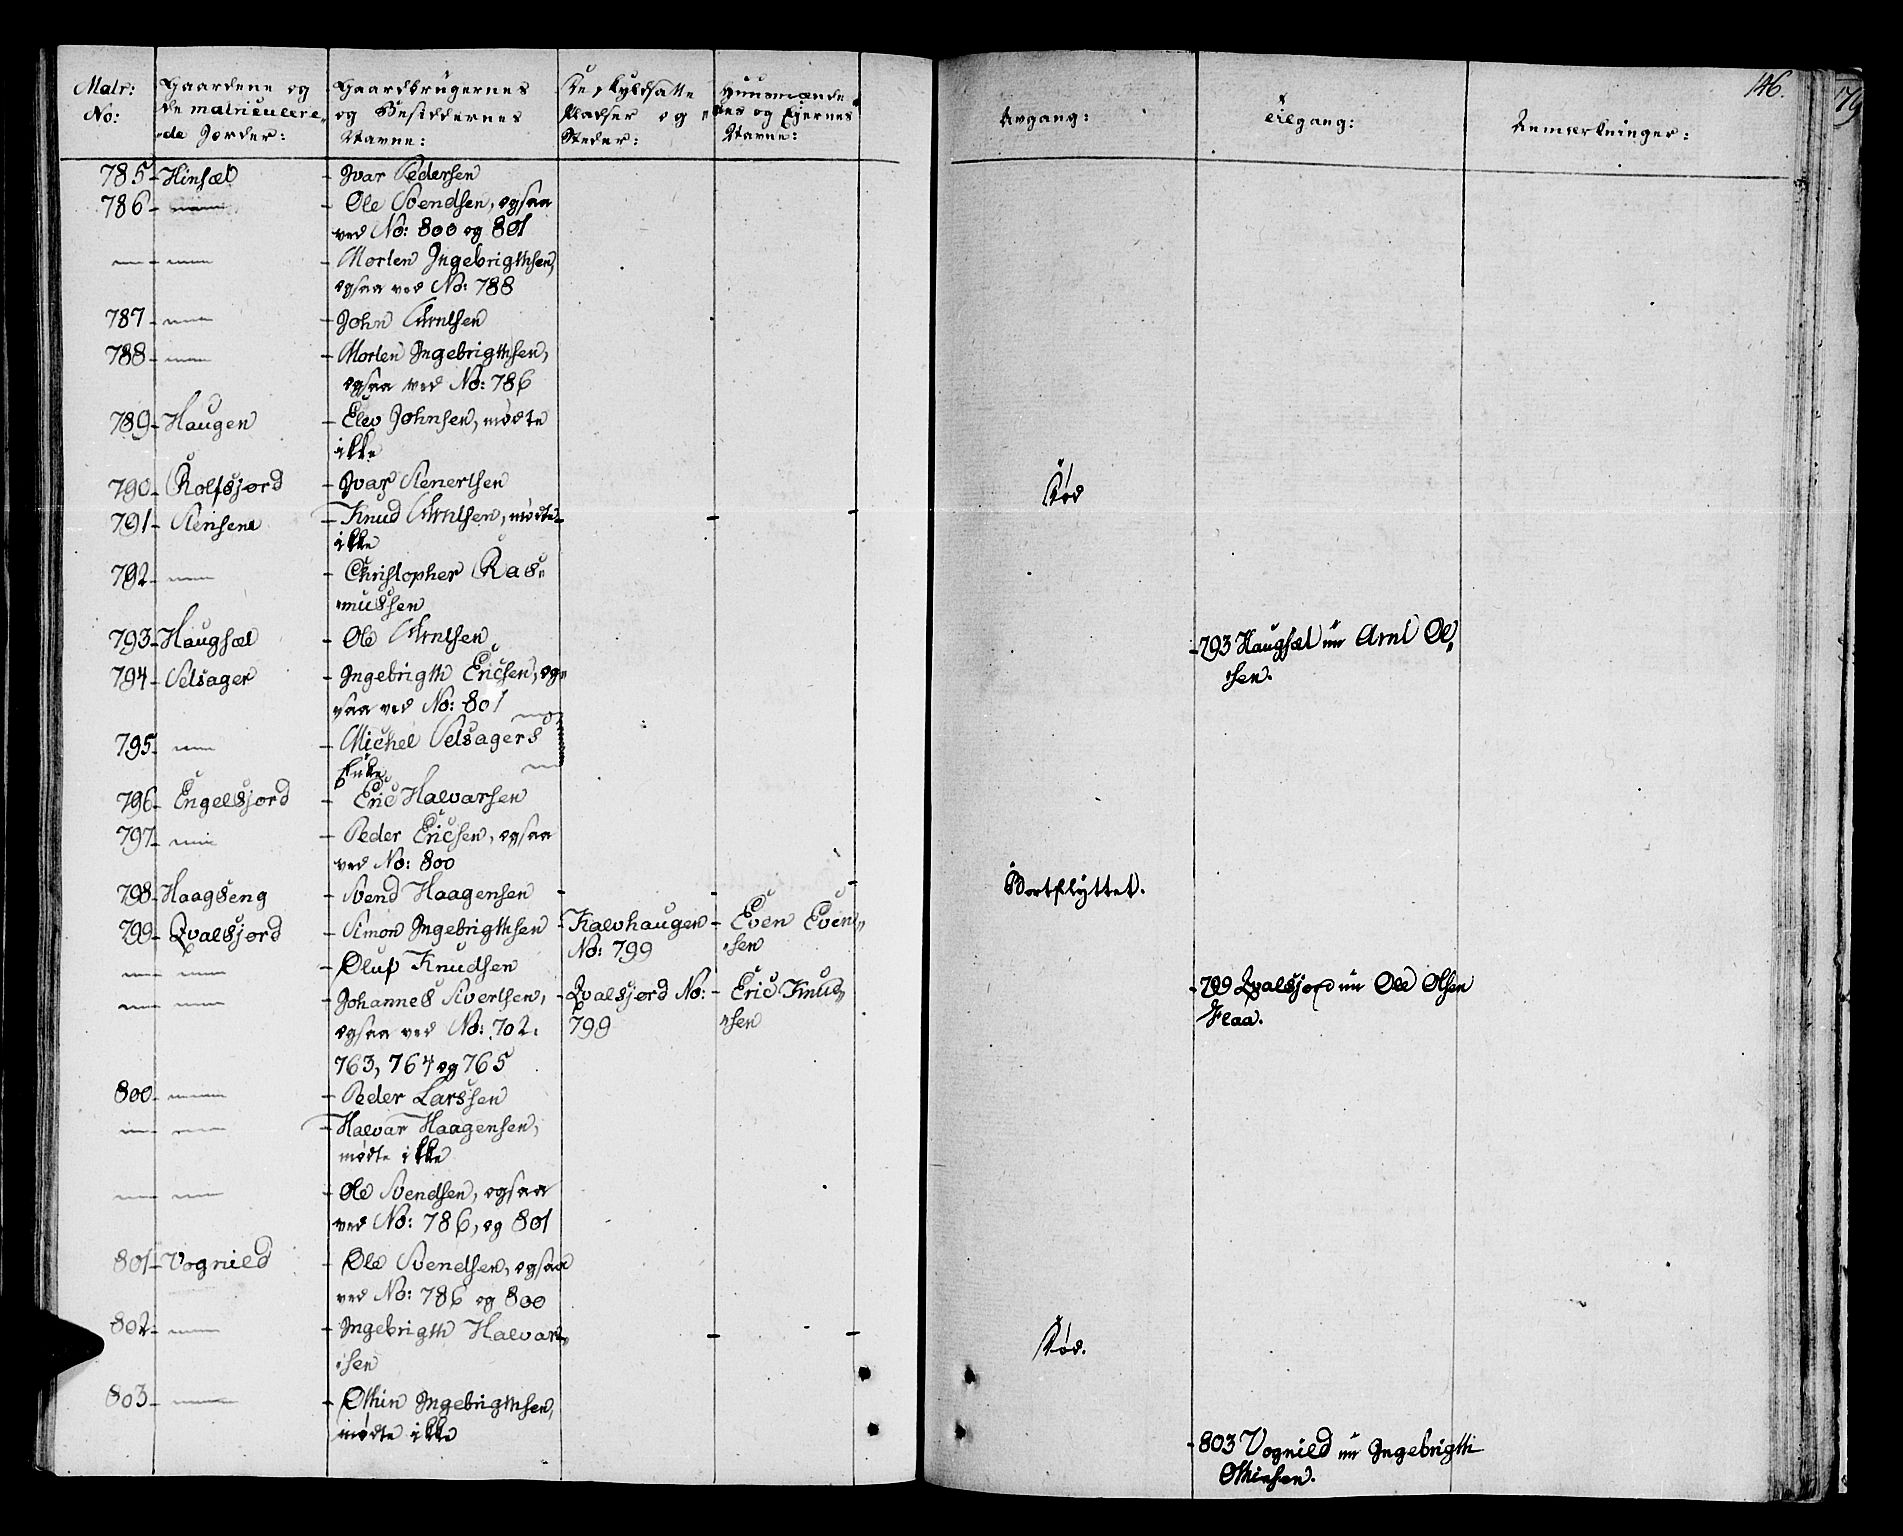 Matr: No:
Gaardene og de matriculere„ „de Jorder:
Gaardbrugernes og Besiddernes Navne:
De skyldsatte Pladser og Steder:
Huusmænde„ „nes og Ejernes Navne:
Avgang:
Tilgang:
Anmerkninger:
146.
785- Hinsæl - Ivar Pedersen
786- - Ole Svendsen, ogsaa
ved No: 800 og 801
- Morten Ingebrigthsen,
ogsaa ved No: 788
787- - John Arntsen
788- - Morten Ingebrigthsen,
ogsaa ved No: 786
789- Haugen - Elev Johnsen, mødte
ikke
790- Rolfsjord - Ivar Stenertsen
Død
791- Stensem - Knud Arntsen, mødte
ikke
792- - Christopher Ras„
„mussen
793- Haugsæl - Ole Arntsen
-793 Haugsæl nu Arnt Ol„
„sen.
794- Selsager - Ingebrigth Ericsen, og„
saa ved No: 801
795- - Michel Selsagers
Enke
796- Engelsjord - Eric Halvarsen
797- - Peder Ericsen, ogsaa
ved No: 800
798- Haagseng - Svend Haagensen
Bortflyttet.
799- Qvalsjord - Simon Ingebrigthsen - Kalvhaugen - Even Even„
No: 799 „sen
- Oluf Knudsen
- Johannes Sivertsen, - Qvalsjord No: - Eric Knud„
-799 Qvalsjord nu Ole Olsen
ogsaa ved No: 702. 799 „sen
Flaa.
763, 764 og 765
800- - Peder Larssen
- Halvar Haagensen,
mødte ikke
- Ole Svendsen, ogsaa
ved No: 786, og 801
801- Vognild - Ole Svendsen, ogsaa
ved No: 786 og 800
802- - Ingebrigth Halvar„
„sen
Død.
803- - Othin Ingebrigthsen,
mødte ikke
-803 Vognild nu Ingebrigth
Othinsen.